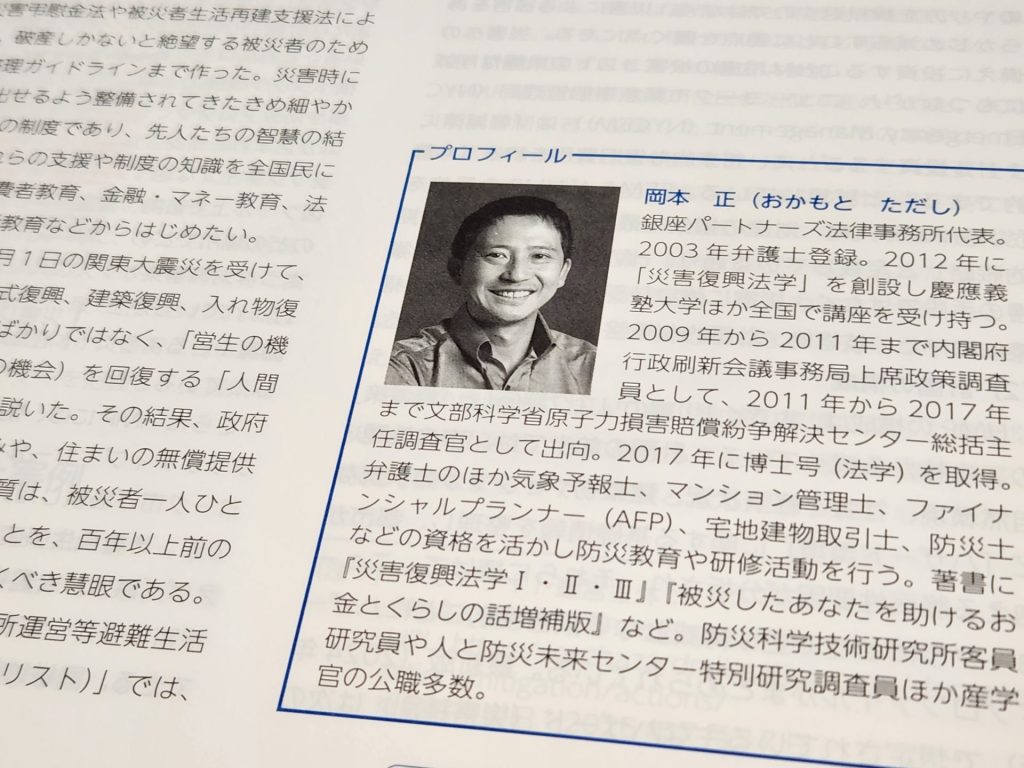 災害弔慰金法や被災者生活再建支援法によ
、破産しかないと絶望する被災者のため
理ガイドラインまで作った。災害時に
出せるよう整備されてきたきめ細やか
の制度であり、先人たちの智慧の結
らの支援や制度の知識を全国民に
費者教育、金融・マネー教育、法
教育などからはじめたい。
月1日の関東大震災を受けて、
式復興、建築復興、入れ物復
ばかりではなく、「営生の機
の機会）を回復する「人間
説いた。その結果、政府
みや、住まいの無償提供
質は、被災者一人ひと
とを、百年以上前の
べき慧眼である。
所運営等避難生活
リスト）」では、
プロフィール
岡本 正（おかもと ただし）
銀座パートナーズ法律事務所代表。
2003年弁護士登録。2012年に
「災害復興法学」を創設し慶應義
塾大学ほか全国で講座を受け持つ。
2009年から2011年まで内閣府
行政刷新会議事務局上席政策調査
員として、2011年から2017年
まで文部科学省原子力損害賠償紛争解決センター総括主
任調査官として出向。2017年に博士号（法学）を取得。
弁護士のほか気象予報士、マンション管理士、ファイナ
ンシャルプランナー（AFP）、宅地建物取引士、防災士
などの資格を活かし防災教育や研修活動を行う。著書に
『災害復興法学Ⅰ・Ⅱ・Ⅲ』『被災したあなたを助けるお
金とくらしの話増補版』など。防災科学技術研究所客員
研究員や人と防災未来センター特別研究調査員ほか産学
官の公職多数。